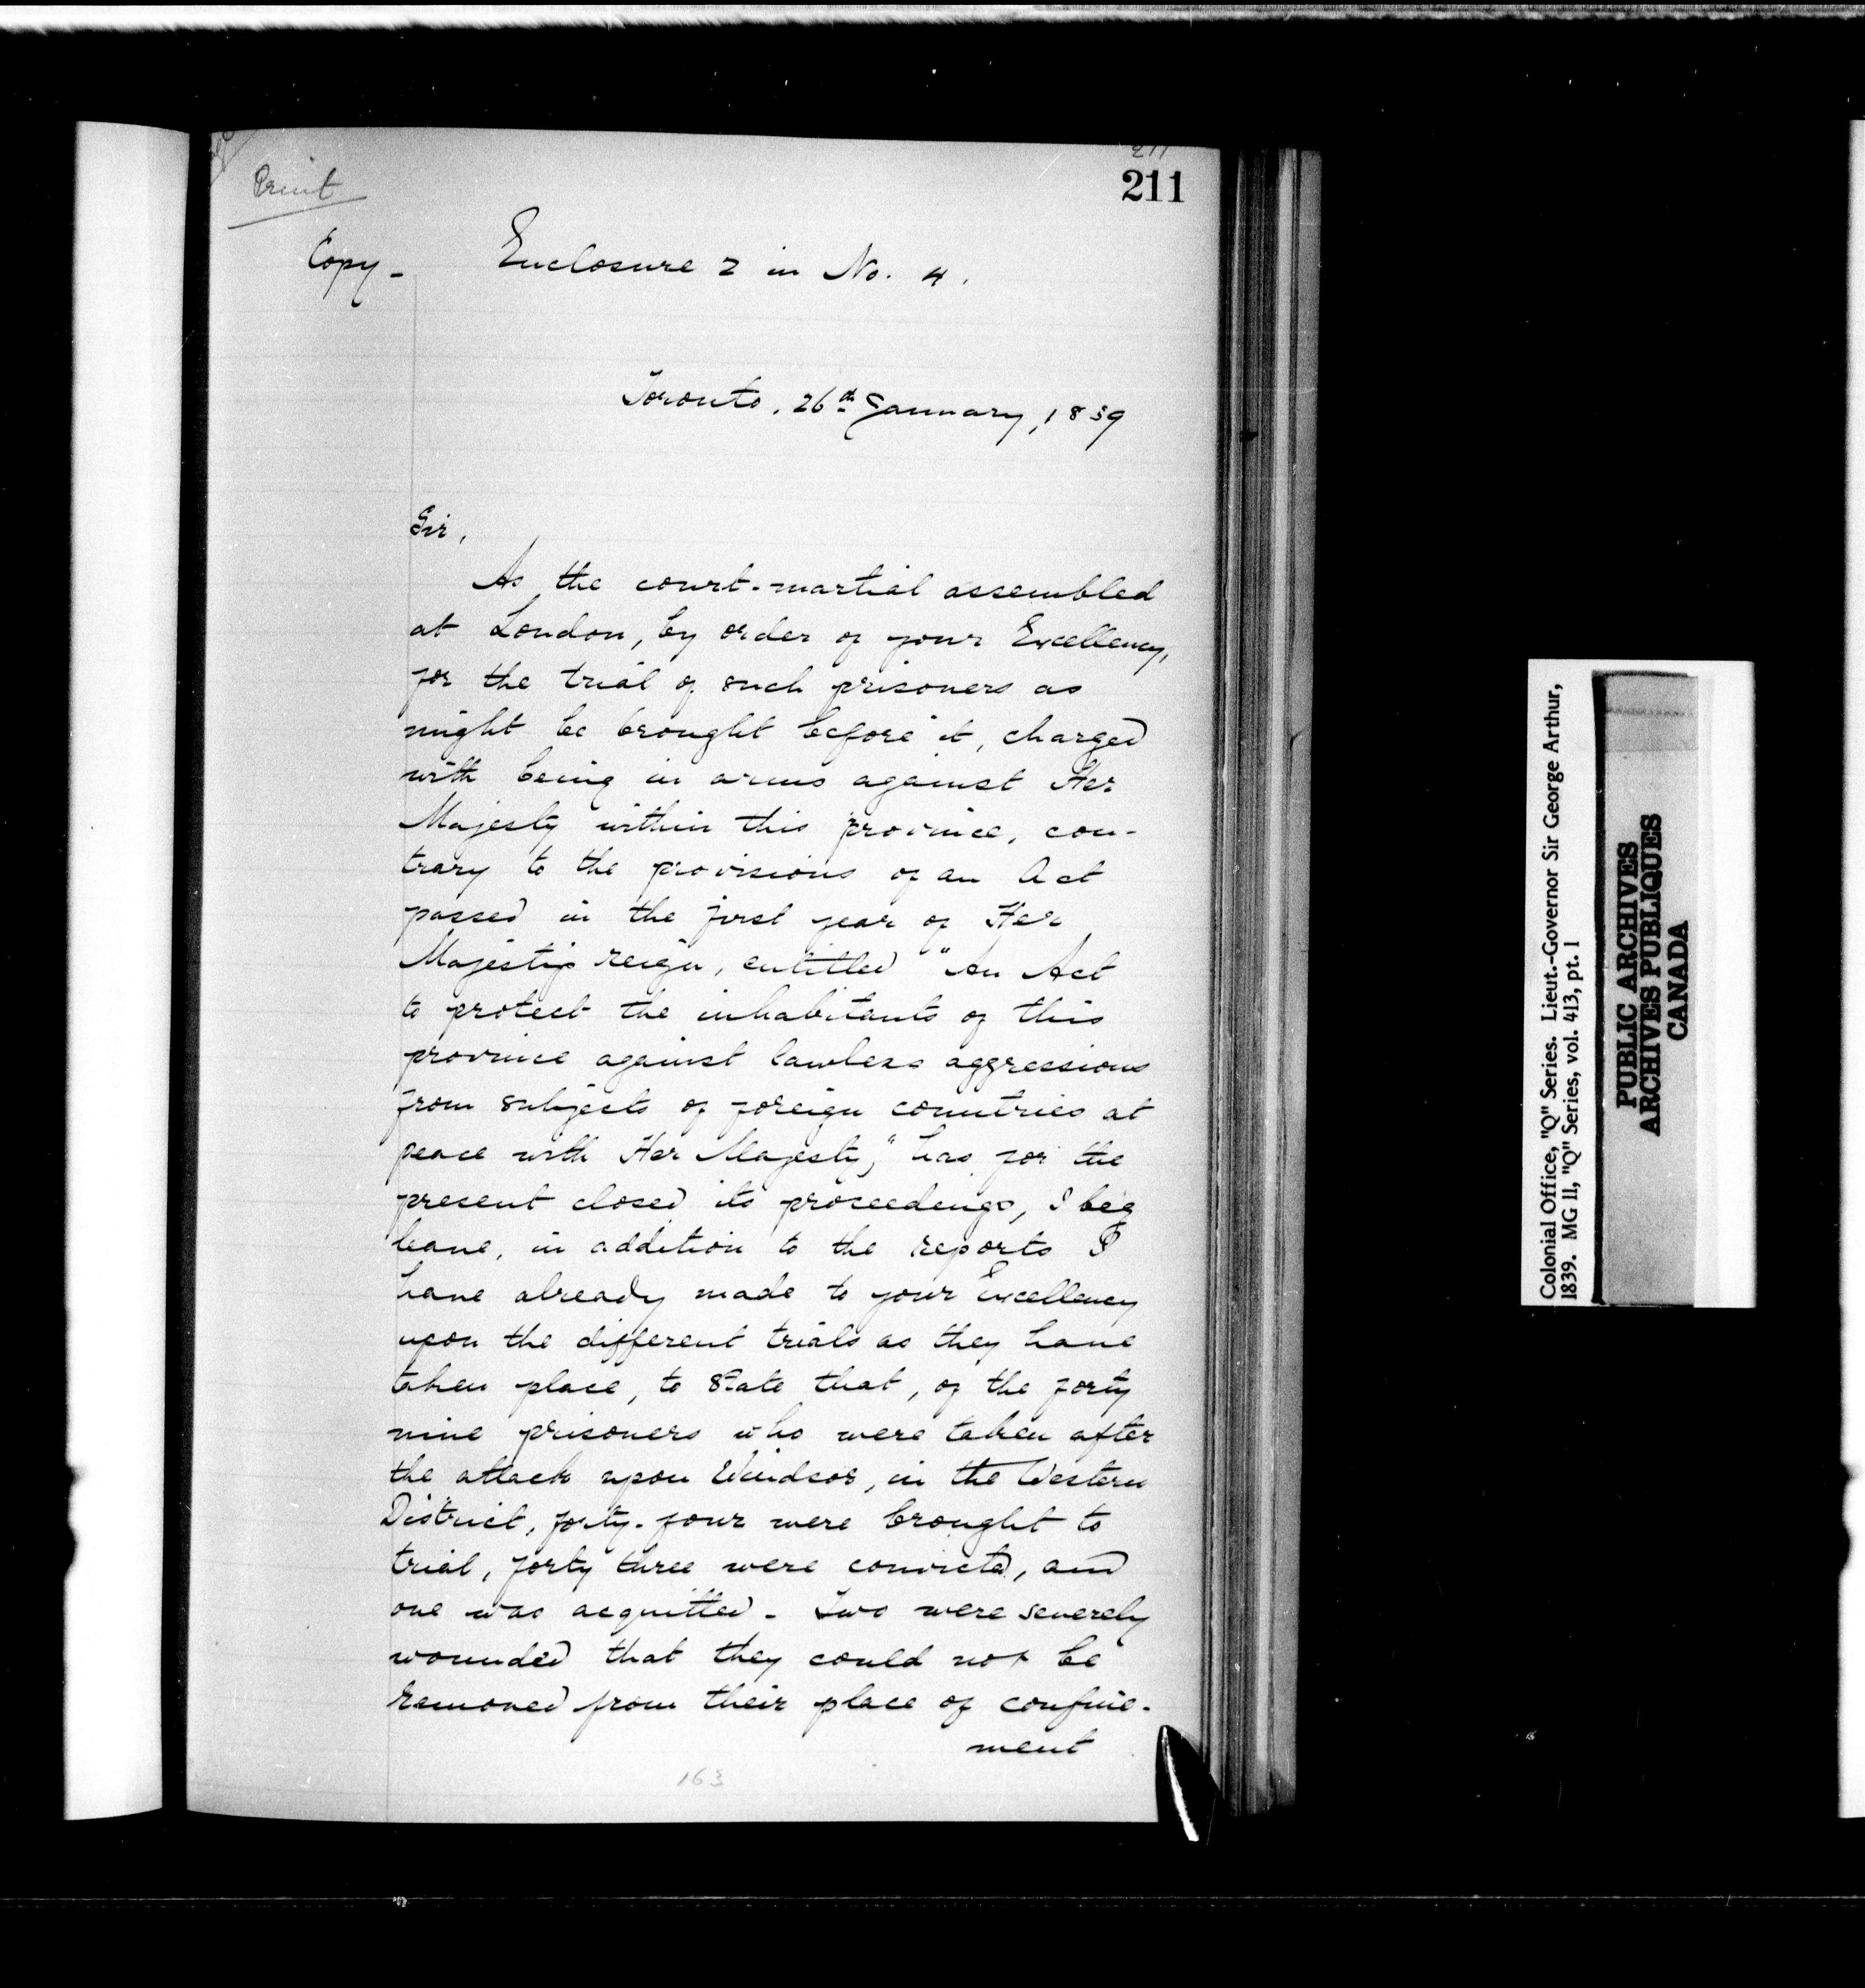 211
211
Print
Copy - Enclosure 2 in No. 4.
Toronto, 26th January, 1839
Sir,
As the court-martial assembled
at London, by order of your Excellency,
for the trial of such prisoners as
might be brought before it, charged
with being in arms against Her
Majesty within this province, con-
trary to the provisions of an Act
passed in the first year of Her
Majesty's reign, entitled "An Act
to protect the inhabitants of this
province against lawless aggressions
from subjects of foreign countries at
peace with Her Majesty," has for the
present closed its proceedings, I beg
leave, in addition to the reports I
have already made to your Excellency
upon the different trials as they have
taken place, to state that, of the forty
nine prisoners who were taken after
the attack upon Windsor, in the Western
District, forty-four were brought to
trial, forty three were convicted, and
one was acquitted - Two were severely
wounded that they could not be
removed from their place of confine-
ment
163
Colonial Office, "Q" Series. Lieut.-Governor Sir George Arthur,
1839. MG 11, "Q" Series, vol. 413, pt. 1
PUBLIC ARCHIVES
ARCHIVES PUBLIQUES
CANADA